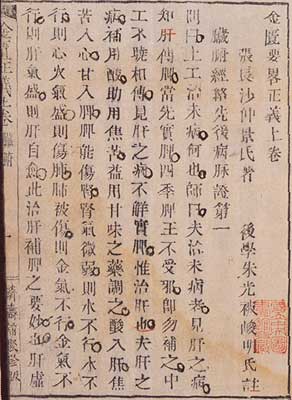 金匱要畧正義上卷
張長沙仲景氏著 後學朱光被峻明氏註
臟腑經絡先後病脈證第一
問曰上工治未病何也師曰夫治未病者見肝之病
知肝傳脾當先實脾四季脾王不受邪卽勿補之中
工不曉相傳見肝之病不解實脾惟治肝也夫肝之
病補用酸助用焦苦益用甘味之藥調之酸入肝焦
苦入心甘入脾脾能傷腎腎氣微弱則水不行水不
行則心火氣盛則傷肺肺被傷則金氣不行金氣不
行則肝氣盛則肝自愈此治肝補脾之要妙也肝虛
正義上卷
一